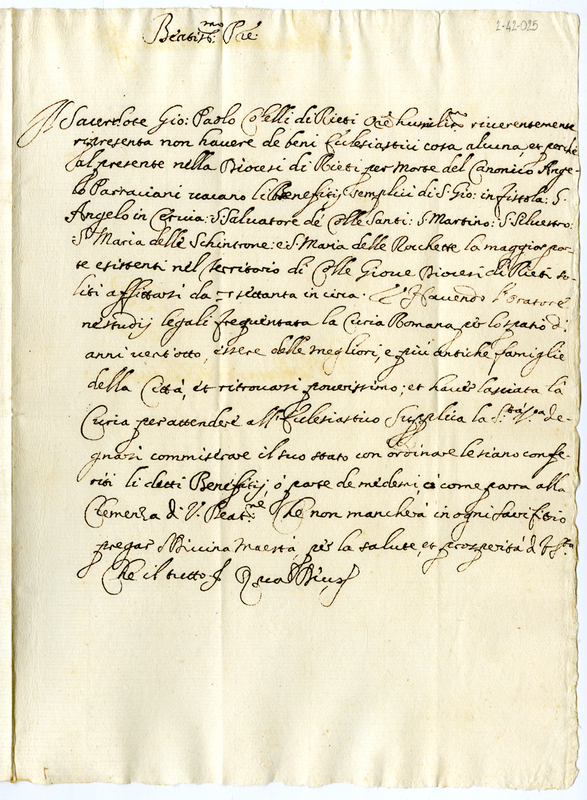 2-42-025
Beatis.mo Pre
Il Sacerdote Gio: Paolo Colli di Rieti Ore humiliss.mo riverentemente
ripresenta non havere de beni Ecclesiastici cosa alcuna, et perche
al presente nella Diocesi di Rieti per Morte del Canonico Ange-
lo Parraciani vacano li Beneficij semplici di S. Gio: in fistola: S.
Angelo in Cervia: S. Salvatore de Colle Santi: S. Martino: S. Silvestro:
S. Maria delle Schintrone: e S. Maria delle Rochette la maggior par-
te esistenti nel territorio di Colle Giove Diocesi di Rieti so-
liti affittarsi da settanta in circa. Et Havendo l'Oratore
ne studij legali frequentata la Curia Romana per lo spatio d'
anni vent'otto, essere delle megliori, e più antiche famiglie
della Città, et ritrovarsi poverissimo; et haver lasciata la
Curia per attendere all'Ecclesiastico Supplica la S.tà V.ra de-
gnarsi commiserare il suo stato con ordinare le siano confe-
riti li detti Beneficij, ò parte de medemi, come parrà alla
Clemenza di V. Beat.ne Che non mancherà in ogni Sacrifitio
pregar S Divina Maestà, per la salute, et prosperità di V S.tà
Che il tutto